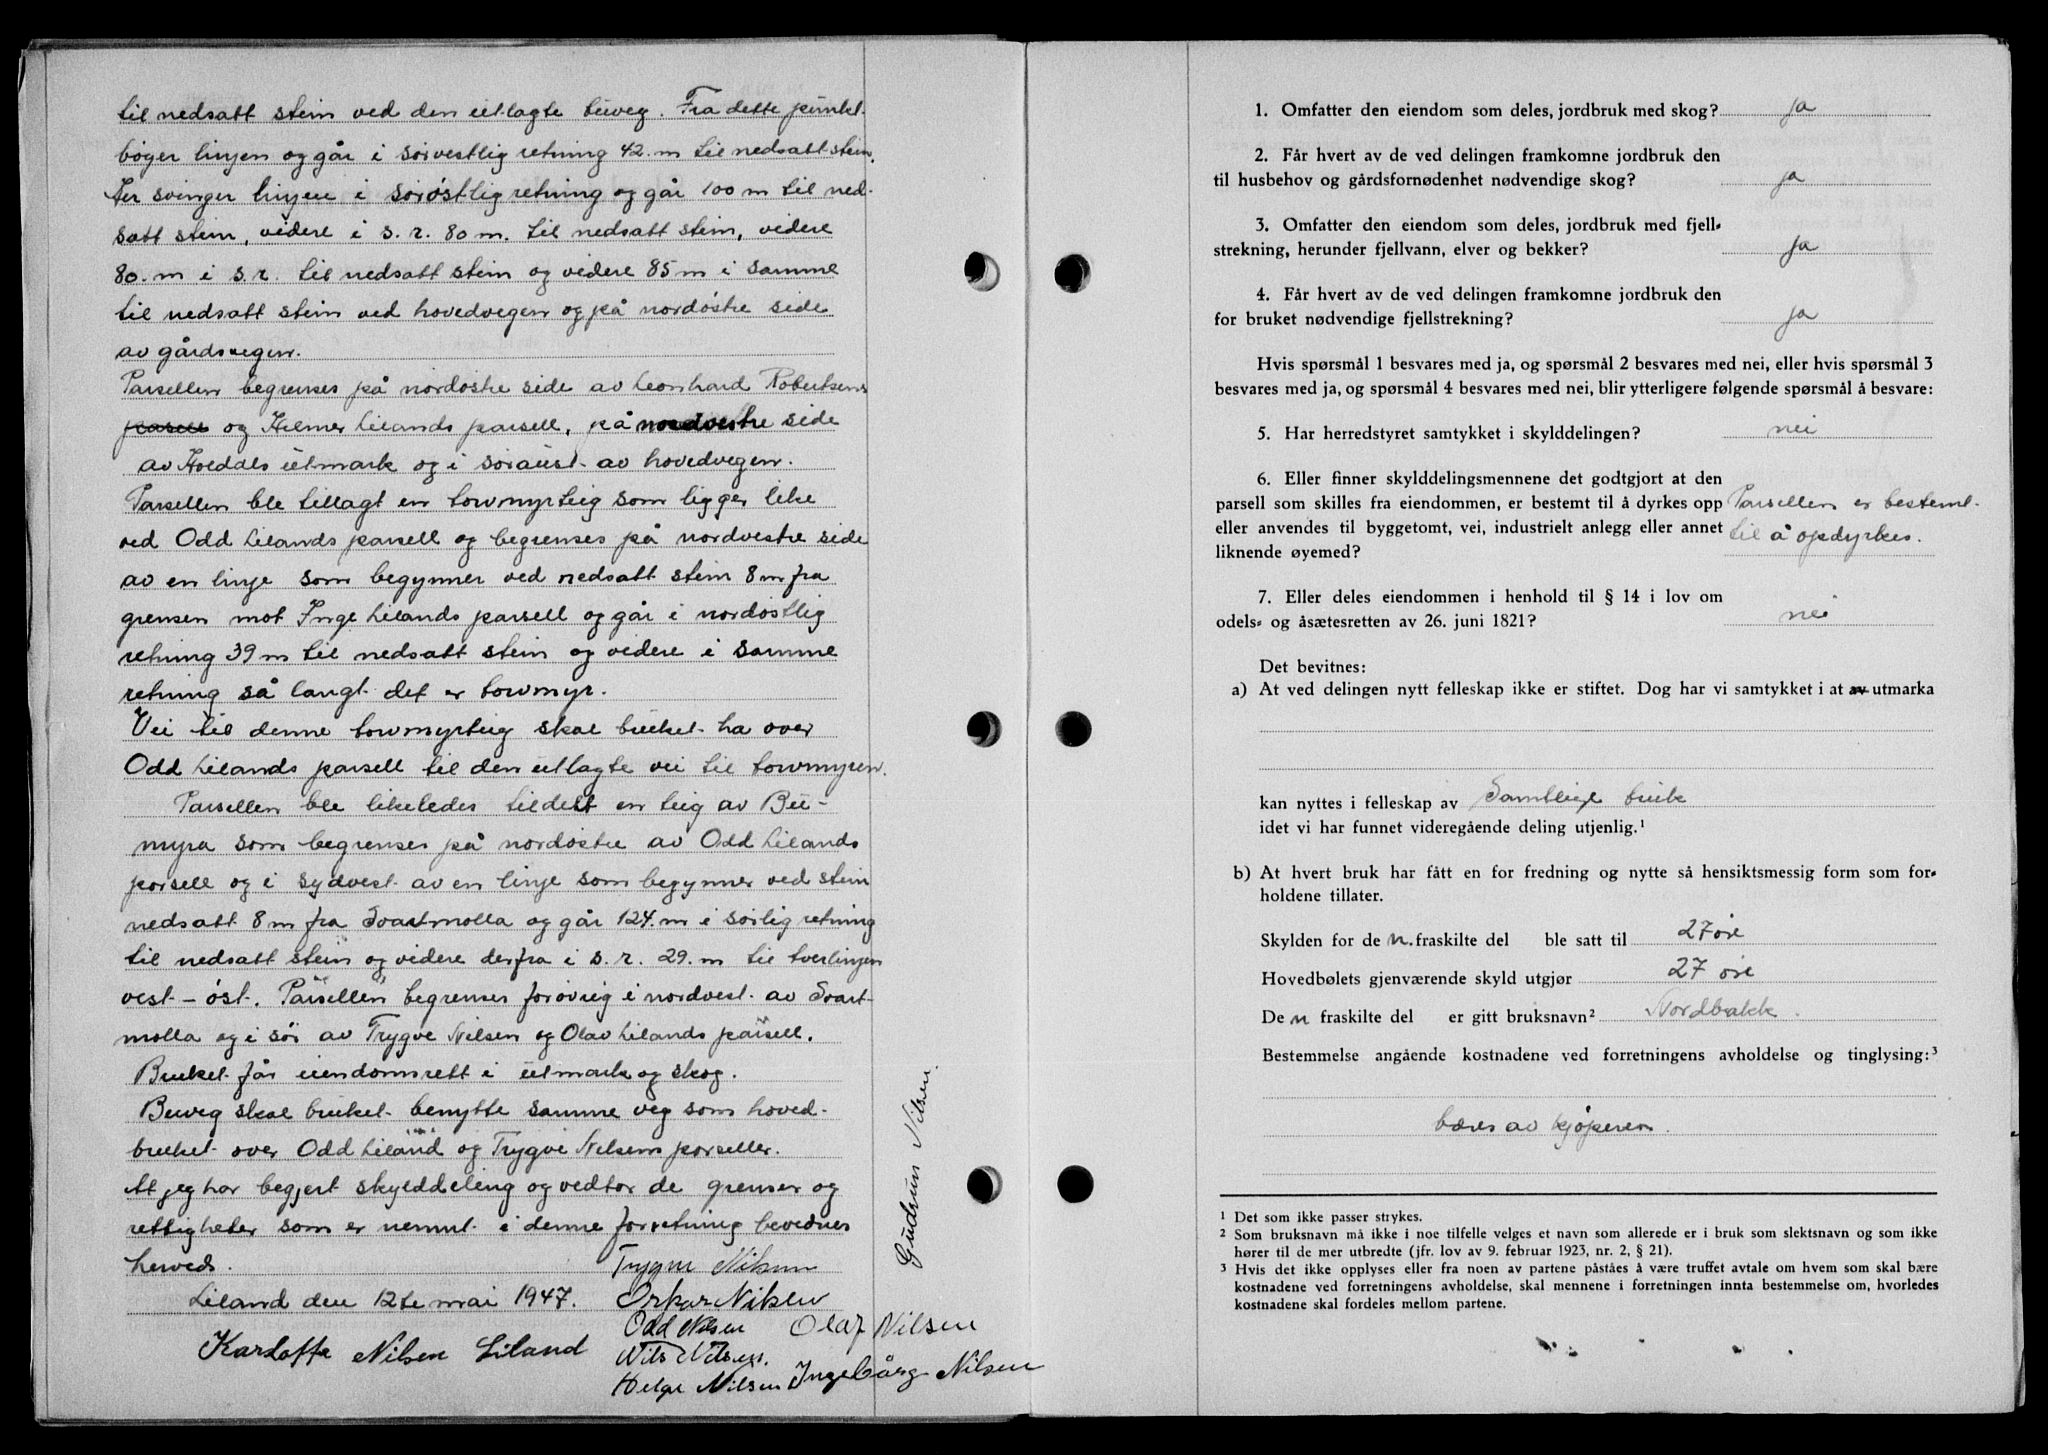 til nedsatt stein ved den utlagte buveg. Fra dette punkt
bøger linjen og går i sørvestlig retning 42 m til nedsatt stein.
Her svinger linjen i sørøstlig retning og går 100 m til ned-
satt stein, videre i s. r. 80 m. til nedsatt stein, videre
80 m i s. r. til nedsatt stein og videre 85 m i samme
til nedsatt stein ved hovedvegen og på nordøstre side
av gårdsvegen.
Parsellen begrenses på nordøstre side av Leonhard Robertsens
parsell og Hilmer Lilands parsell, på nordvestre side
av Holdals utmark og i søraust av hovedvegen.
Parsellen ble tillagt en torvmyrteig som ligger like
ved Odd Lilands parsell og begrenses på nordvestre side
av en linje som begynner ved nedsatt stein 8 m fra
grensen mot Inge Lilands parsell og går i nordøstlig
retning 39 m til nedsatt stein og videre i samme
retning så langt det er torvmyr.
Vei til denne torvmyrteig skal bruket ha over
Odd Lilands parsell til den utlagte vei til torvmyren.
Parsellen ble likeledes tildelt en teig av Bu-
myra som begrenses på nordøstre av Odd Lilands
parsell og i sydvest av en linje som begynner ved stein
nedsatt 8 m fra Svartmolla og går 124 m i sørlig retning
til nedsatt stein og videre derfra i s. r. 29 m til tverlinjen
vest - øst. Parsellen begrenses forøvrig i nordvest av Svart-
molla og i sør av Trygve Nilsen og Olav Lilands parsell.
Bruket får eiendomsrett i utmark og skog.
Buveg skal bruket benytte samme veg som hoved-
bruket over Odd Liland og Trygve Nilsens parseller.
At jeg har begjert skylddeling og vedtar de grenser og
rettigheter som er nevnt i denne forretning bevidnes
herved.
Liland den 12te mai 1947.
Trygve Nilsen
Oskar Nilsen
Odd Nilsen Olaf Nilsen
Karlotte Nilsen Liland
Nils Nilsen.
Helge Nilsen Ingebårg Nilsen
Gudrun Nilsen.
1. Omfatter den eiendom som deles, jordbruk med skog? ja
2. Får hvert av de ved delingen framkomne jordbruk den
til husbehov og gårdsfornødenhet nødvendige skog? ja
3. Omfatter den eiendom som deles, jordbruk med fjell-
strekning, herunder fjellvann, elver og bekker? ja
4. Får hvert av de ved delingen framkomne jordbruk den
for bruket nødvendige fjellstrekning? ja
Hvis spørsmål 1 besvares med ja, og spørsmål 2 besvares med nei, eller hvis spørsmål 3
besvares med ja, og spørsmål 4 besvares med nei, blir ytterligere følgende spørsmål å besvare:
5. Har herredstyret samtykket i skylddelingen? nei
6. Eller finner skylddelingsmennene det godtgjort at den
parsell som skilles fra eiendommen, er bestemt til å dyrkes opp Parsellen er bestemt
eller anvendes til byggetomt, vei, industrielt anlegg eller annet til å opdyrkes.
liknende øyemed?
7. Eller deles eiendommen i henhold til § 14 i lov om
odels- og åsætesretten av 26. juni 1821? nei
Det bevitnes:
a) At ved delingen nytt felleskap ikke er stiftet. Dog har vi samtykket i at av utmarka
kan nyttes i felleskap av Samtlige bruk
idet vi har funnet videregående deling utjenlig.¹
b) At hvert bruk har fått en for fredning og nytte så hensiktsmessig form som for-
holdene tillater.
Skylden for de n fraskilte del ble satt til 27 øre
Hovedbølets gjenværende skyld utgjør 27 øre
De n fraskilte del er gitt bruksnavn² Nordbakk.
Bestemmelse angående kostnadene ved forretningens avholdelse og tinglysing:³
bæres av kjøperen.
¹ Det som ikke passer strykes.
² Som bruksnavn må ikke i noe tilfelle velges et navn som allerede er i bruk som slektsnavn og som ikke
hører til de mer utbredte (jfr. lov av 9. februar 1923, nr. 2, § 21).
³ Hvis det ikke opplyses eller fra noen av partene påståes å være truffet avtale om hvem som skal bære
kostnadene ved forretningens avholdelse, skal mennene i forretningen innta bestemmelse om, hvorledes
kostnadene skal fordeles mellom partene.